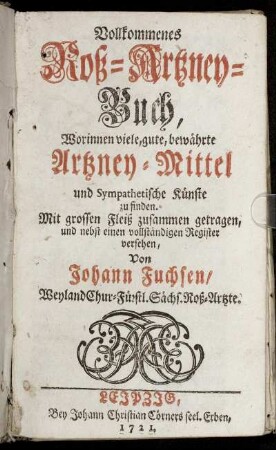 Vollkommenes
Roß-Artzney-
Buch,
Worinnen viele, gute, bewährte
Artzney-Mittel
und Sympathetische Künste
zu finden.
Mit grossen Fleiß zusammen getragen,
und nebst einen vollständigen Register
versehen,
Von
Johann Fuchsen/
Weyland Chur-Fürstl. Sächs. Roß-Artzte.
LEIPZIG,
Bey Johann Christian Cörners seel. Erben,
1721.